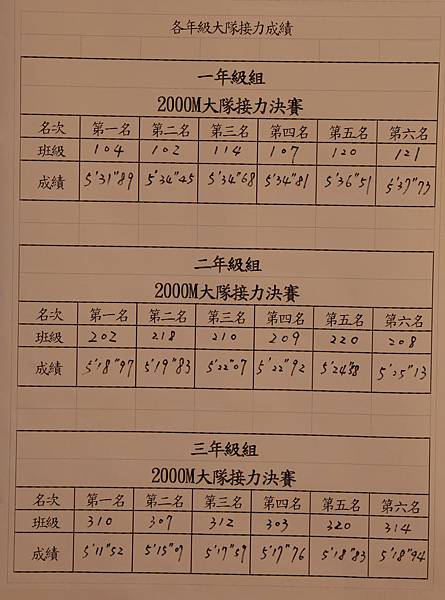 各年級大隊接力成績
一年級組
2000M大隊接力決賽
名次 第一名 第二名 第三名 第四名 第五名 第六名
班級 104 102 114 107 120 121
成績 5'31"89 5'34"45 5'34"68 5'34"81 5'36"51 5'37"73
二年級組
2000M大隊接力決賽
名次 第一名 第二名 第三名 第四名 第五名 第六名
班級 202 218 210 209 220 208
成績 5'18"97 5'19"83 5'22"07 5'22"92 5'24"38 5'25"13
三年級組
2000M大隊接力決賽
名次 第一名 第二名 第三名 第四名 第五名 第六名
班級 310 307 312 303 320 314
成績 5'11"52 5'15"09 5'17"59 5'17"76 5'18"83 5'18"94